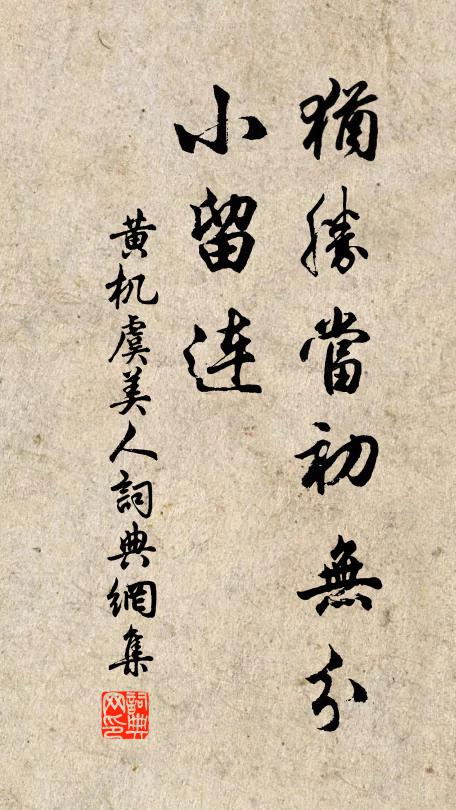 猶勝當初無分
小留連
黄机虞美人詞典網集
詞典网印